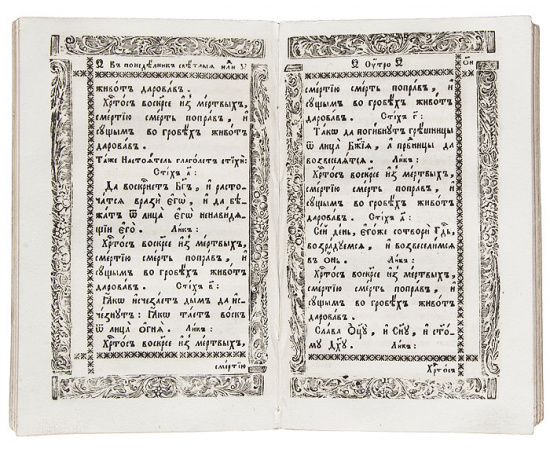 Въ понедѣлник свѣтлыѧ
живот̾ даровавъ.
Хрⷭ҇то́съ воскре́се и҆з̾ ме́ртвыхъ,
сме́ртїю сме́рть попра́въ, и҆
су́щымъ во гробѣ́хъ живо́тъ
дарова́въ.
Та́же Настоѧтель глаго́летъ стїхи̑:
Сті́хъ а҃:
Да воскре́снетъ Бг҃ъ, и҆ расто-
ча́тсѧ вразѝ є҆гѡ̀, и҆ да бѣ-
жа́тъ ѿ лица̀ є҆гѡ̀ ненави́дѧ-
щїи є҆го̀. Ли́къ:
Хрⷭ҇то́съ воскре́се и҆з̾ ме́ртвыхъ,
сме́ртїю сме́рть попра́въ, и҆
су́щымъ во гробѣ́хъ живо́тъ
дарова́въ. Сті́хъ в҃:
Ꙗ҆́кѡ и҆счеза́етъ ды́мъ да и҆с-
че́знутъ: ꙗ҆́кѡ та́етъ во́скъ
ѿ лица̀ ѻ҆гнѧ̀. Ли́къ:
Хрⷭ҇то́съ воскре́се и҆з̾ ме́ртвыхъ,
сме́ртїю
Оу҆́тро
сме́ртїю сме́рть попра́въ, и҆
су́щымъ во гробѣ́хъ живо́тъ
дарова́въ. Сті́хъ г҃:
Та́кѡ да поги́бнутъ грѣ́шницы
ѿ лица̀ Бж҃їѧ, а҆ првⷣницы да
возвеселѧ́тсѧ. Ли́къ:
Хрⷭ҇то́съ воскре́се и҆з̾ ме́ртвыхъ,
сме́ртїю сме́рть попра́въ, и҆
су́щымъ во гробѣ́хъ живо́тъ
дарова́въ. Сті́хъ д҃:
Се́й де́нь, є҆го́же сотворѝ Гдⷭ҇ь,
возра́дуемсѧ, и҆ возвесели́мсѧ
въ ѻ҆́нь. Ли́къ:
Хрⷭ҇то́съ воскре́се и҆з̾ ме́ртвыхъ,
сме́ртїю сме́рть попра́въ, и҆
су́щымъ во гробѣ́хъ живо́тъ
дарова́въ.
Сла́ва Ѻ҆ц҃у̀, и҆ Сн҃у, и҆ ст҃о́-
му Дх҃у. Ли́къ:
Хрⷭ҇то́съ